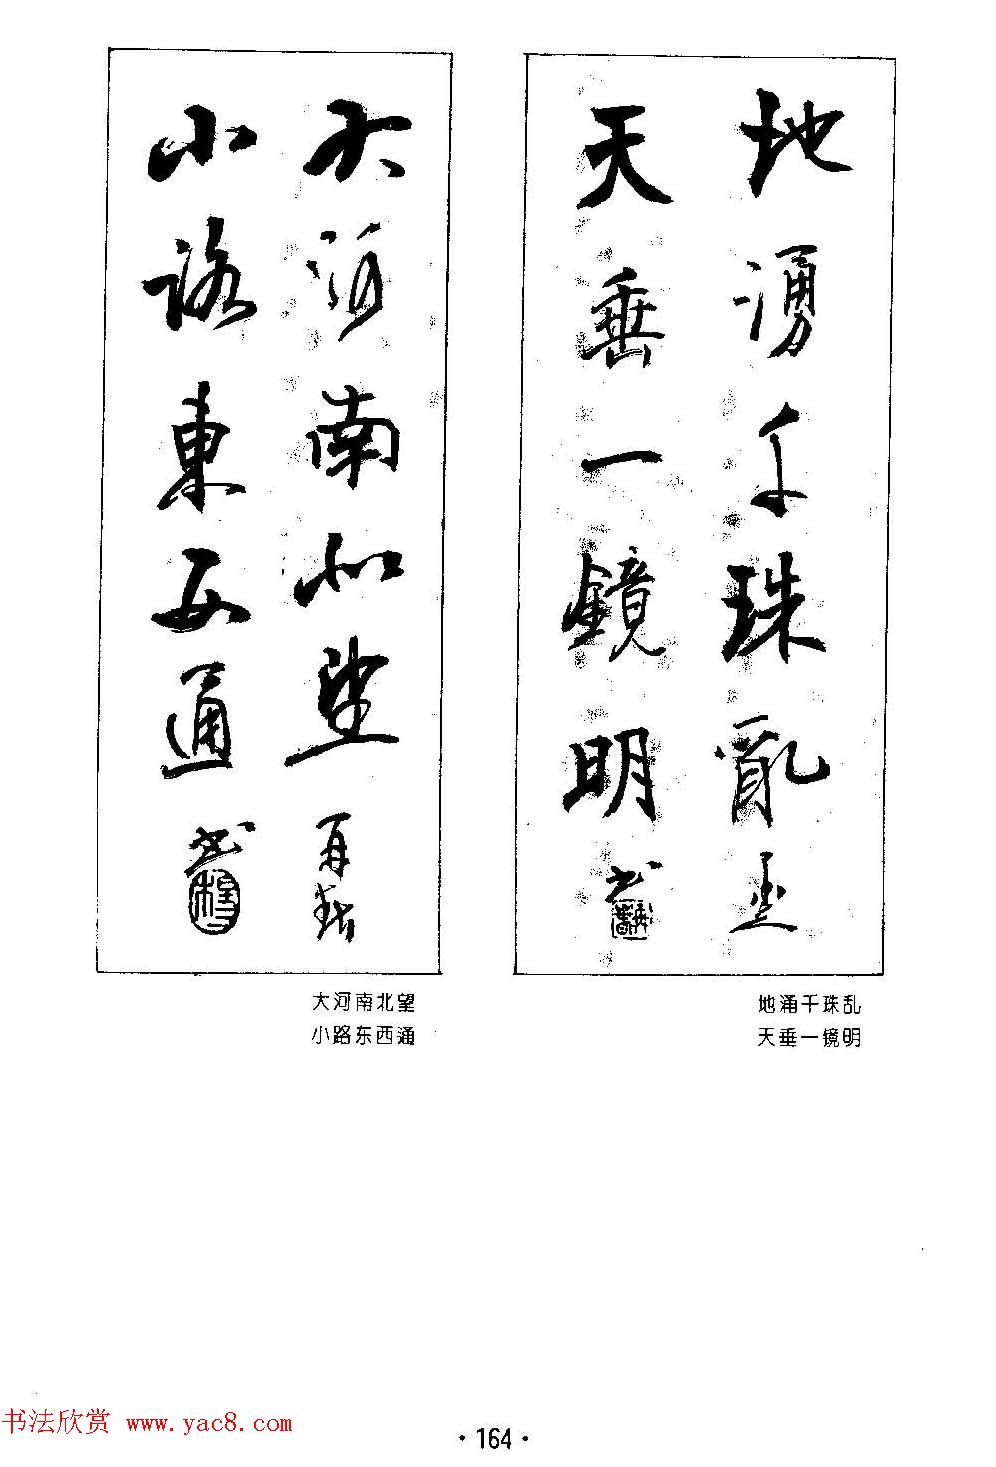 地湧千珠亂
天垂一鏡明
书
大河南北望
小路東西通
书
地涌千珠乱
天垂一镜明
大河南北望
小路东西通
书法欣赏 www.yac8.com
·164·